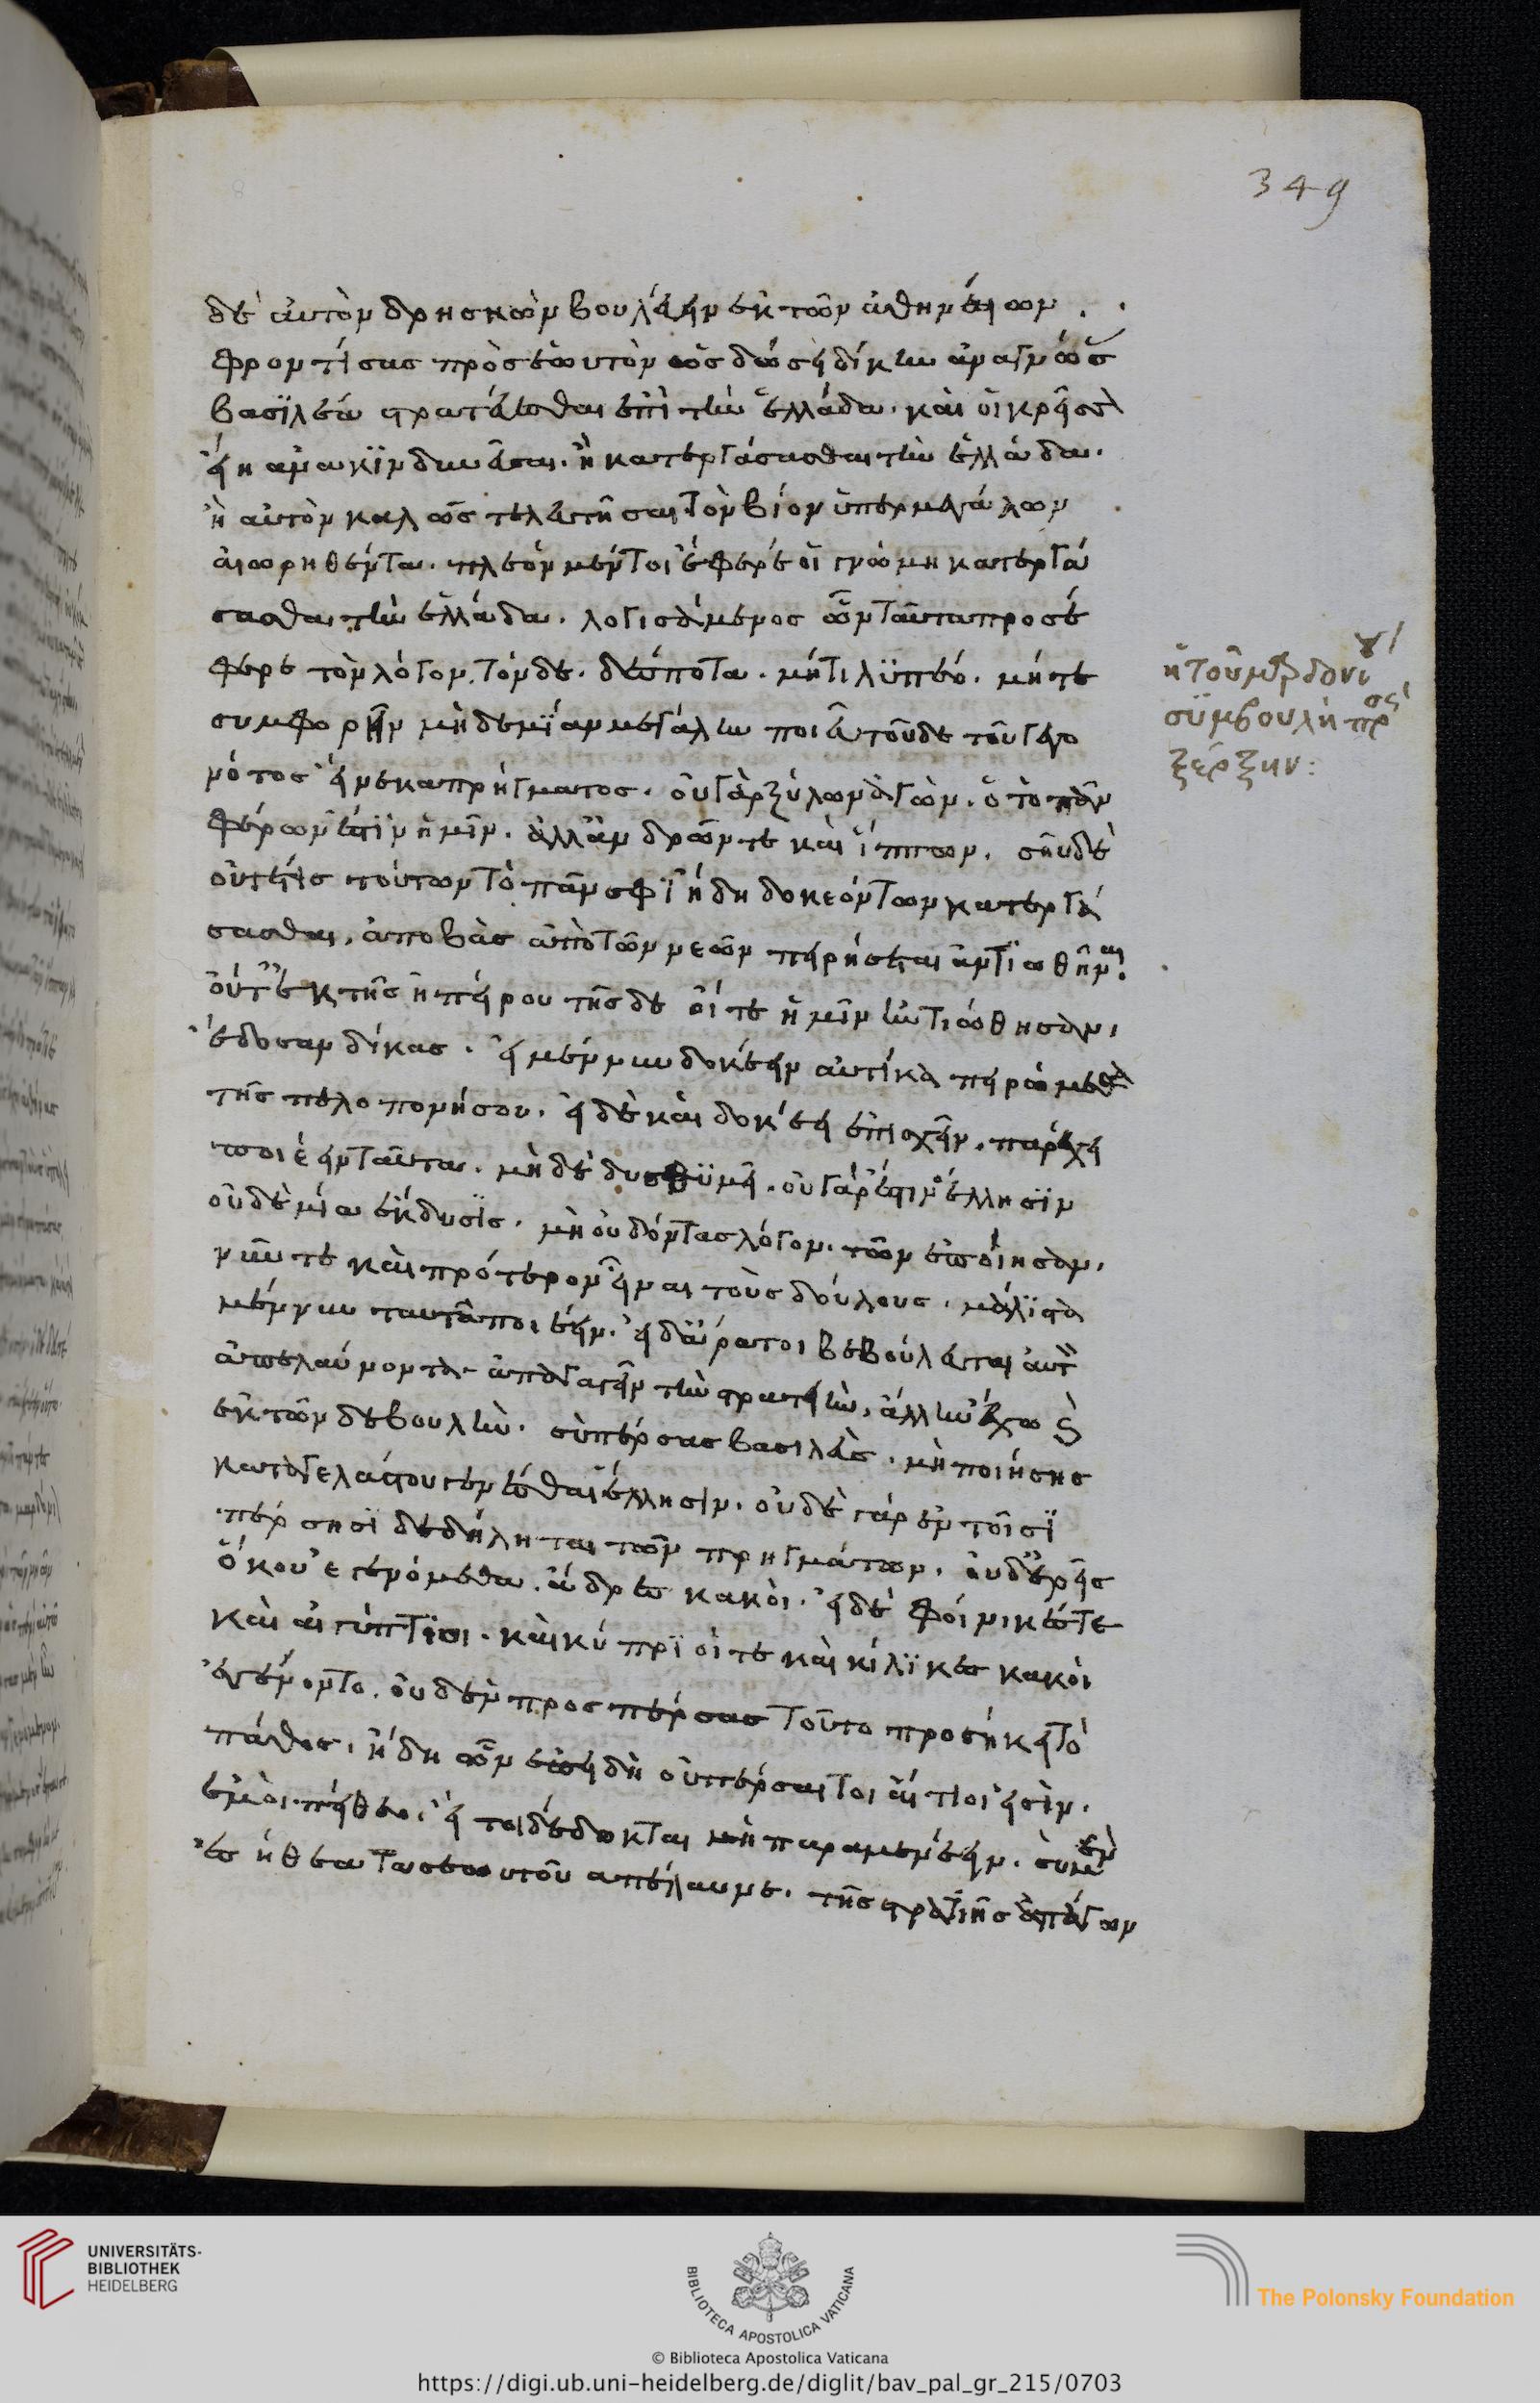 349
δὲ αὐτὸν δρησκὼν βουλέειν ἐκ τῶν ἀθηνέιων.
φροντίσας πρὸς ἑωυτὸν ὡς δώσει δίκην ἀναγνώσας
βασϊλέα στρατεύεσθαι ἐπὶ τὴν ἑλλάδα. καὶ οἱ κρέσσον
εἴη ἀνακϊνδυνεῦσαι. ἢ κατεργάσασθαι τὴν ἑλλάδα.
ἢ αὐτὸν καλῶς τελευτῆσαι τὸν βίον ὑπὲρ μεγάλων
αἰωρηθέντα. πλέον μέντοι ἔφερέ οἱ γνώμη κατεργά
σασθαι τὴν ἑλλάδα. λογισάμενος ὦν ταῦτα προσέ
φερε τὸν λόγον τόνδε. δέσποτα. μήτι λϋπέο. μήτε
συμφορὴν μηδεμϊαν μεγάλην ποιεῦ τοῦδε τοῦ γεγο
νότος εἵνεκα πρήγματος. οὐ γὰρ ξύλων ἀγὼν. ὁ τὸ πᾶν
φέρων ἐστϊν ἡμῖν. ἀλλ' ἀνδρῶν τε καὶ ἵππων. σοὶ δὲ
οὔτέ τις τούτων τὸ πᾶν σφϊ ἤδη δοκεόντων κατεργά
σασθαι, ἀποβὰς ἀπὸ τῶν νεῶν πειρήσεται ἀντϊωθῆναι.
οὔτ' ἐκ τῆς ἠπείρου τῆσδε οἵ τε ἡμῖν ἠντιώθησαν,
ἔδοσαν δίκας. εἰ μέν νυν δοκέειν αὐτίκα πειρώμεθα
τῆς πελοπονήσου. εἰ δὲ καὶ δοκέει ἐπισχεῖν. παρέχει
ποιέειν ταῦτα. μὴ δὲ δυσθϋμει. οὐ γάρ ἐστιν ἕλλησϊν
οὐδεμία ἔκδυσϊς. μὴ οὐ δόντας λόγον. τῶν ἐποίησαν,
νῦν τε καὶ πρότερον εἶναι τοὺς δούλους. μάλϊστα
μέν νυν ταῦτα ποιέειν. εἰ δ' ἄρα τοι βεβούλευται αὐτὸν
ἀπελαύνοντα ἀπάγειν τὴν στρατιὴν, ἄλλην ἔχω καὶ
ἐκ τῶν δε βουλὴν. σὺ πέρσας βασιλεῦ. μὴ ποιήσῃς
καταγελάστους γενέσθαι ἕλλησιν. οὐδὲ γὰρ ἐν τοῖσϊ
πέρσησϊ δεδήληται τῶν πρηγμάτων. οὐδ' ἐρεῖς
ὅκου ἐγενόμεθα ἄνδρες κακοὶ. εἰ δὲ φοίνικές τε
καὶ αἰγύπτϊοι. καὶ κύπρϊοί τε καὶ κίλϊκες κακοὶ
ἐγένοντο. οὐδὲν προς πέρσας τοῦτο προσήκει τὸ
πάθος. ἤδη ὦν ἐπειδὴ οὐ πέρσαι τοι αἴτιοί εἰσιν.
ἐμοὶ πείθεο. εἴ τοι δέδοκται μὴ παραμενέειν. σὺ μὲν
ἐς ἤθεα τὰ σεωυτοῦ ἀπέλαυνε. τῆς στρατϊῆς ἀπάγων
ἡ τοῦ μαρδονίου
σϋμβουλὴ πρὸς
ξέρξην:
UNIVERSITÄTS-
BIBLIOTHEK
HEIDELBERG
BIBLIOTECA APOSTOLICA VATICANA
The Polonsky Foundation
© Biblioteca Apostolica Vaticana
https://digi.ub.uni-heidelberg.de/diglit/bav_pal_gr_215/0703